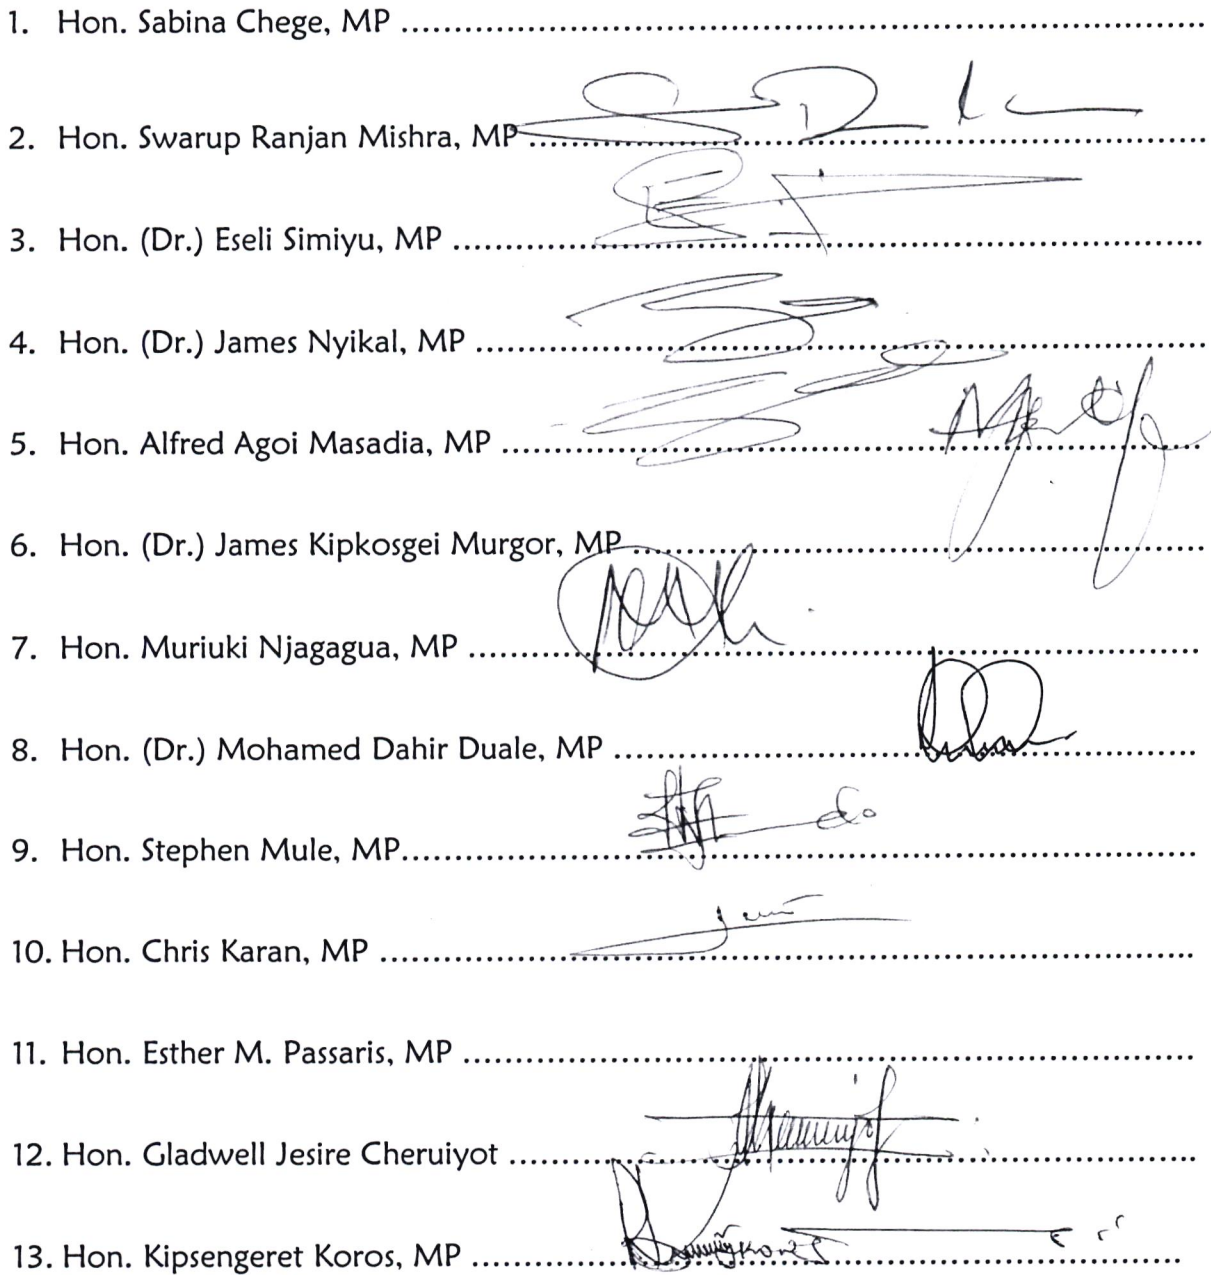 1. Hon. Sabina Chege, MP ................................................................
2. Hon. Swarup Ranjan Mishra, MP ................................................................
3. Hon. (Dr.) Eseli Simiyu, MP ................................................................
4. Hon. (Dr.) James Nyikal, MP ................................................................
5. Hon. Alfred Agoi Masadia, MP ................................................................
6. Hon. (Dr.) James Kipkosgei Murgor, MP ................................................................
7. Hon. Muriuki Njagagua, MP ................................................................
8. Hon. (Dr.) Mohamed Dahir Duale, MP ................................................................
9. Hon. Stephen Mule, MP................................................................
10. Hon. Chris Karan, MP ................................................................
11. Hon. Esther M. Passaris, MP ................................................................
12. Hon. Gladwell Jesire Cheruiyot ................................................................
13. Hon. Kipsengeret Koros, MP ................................................................